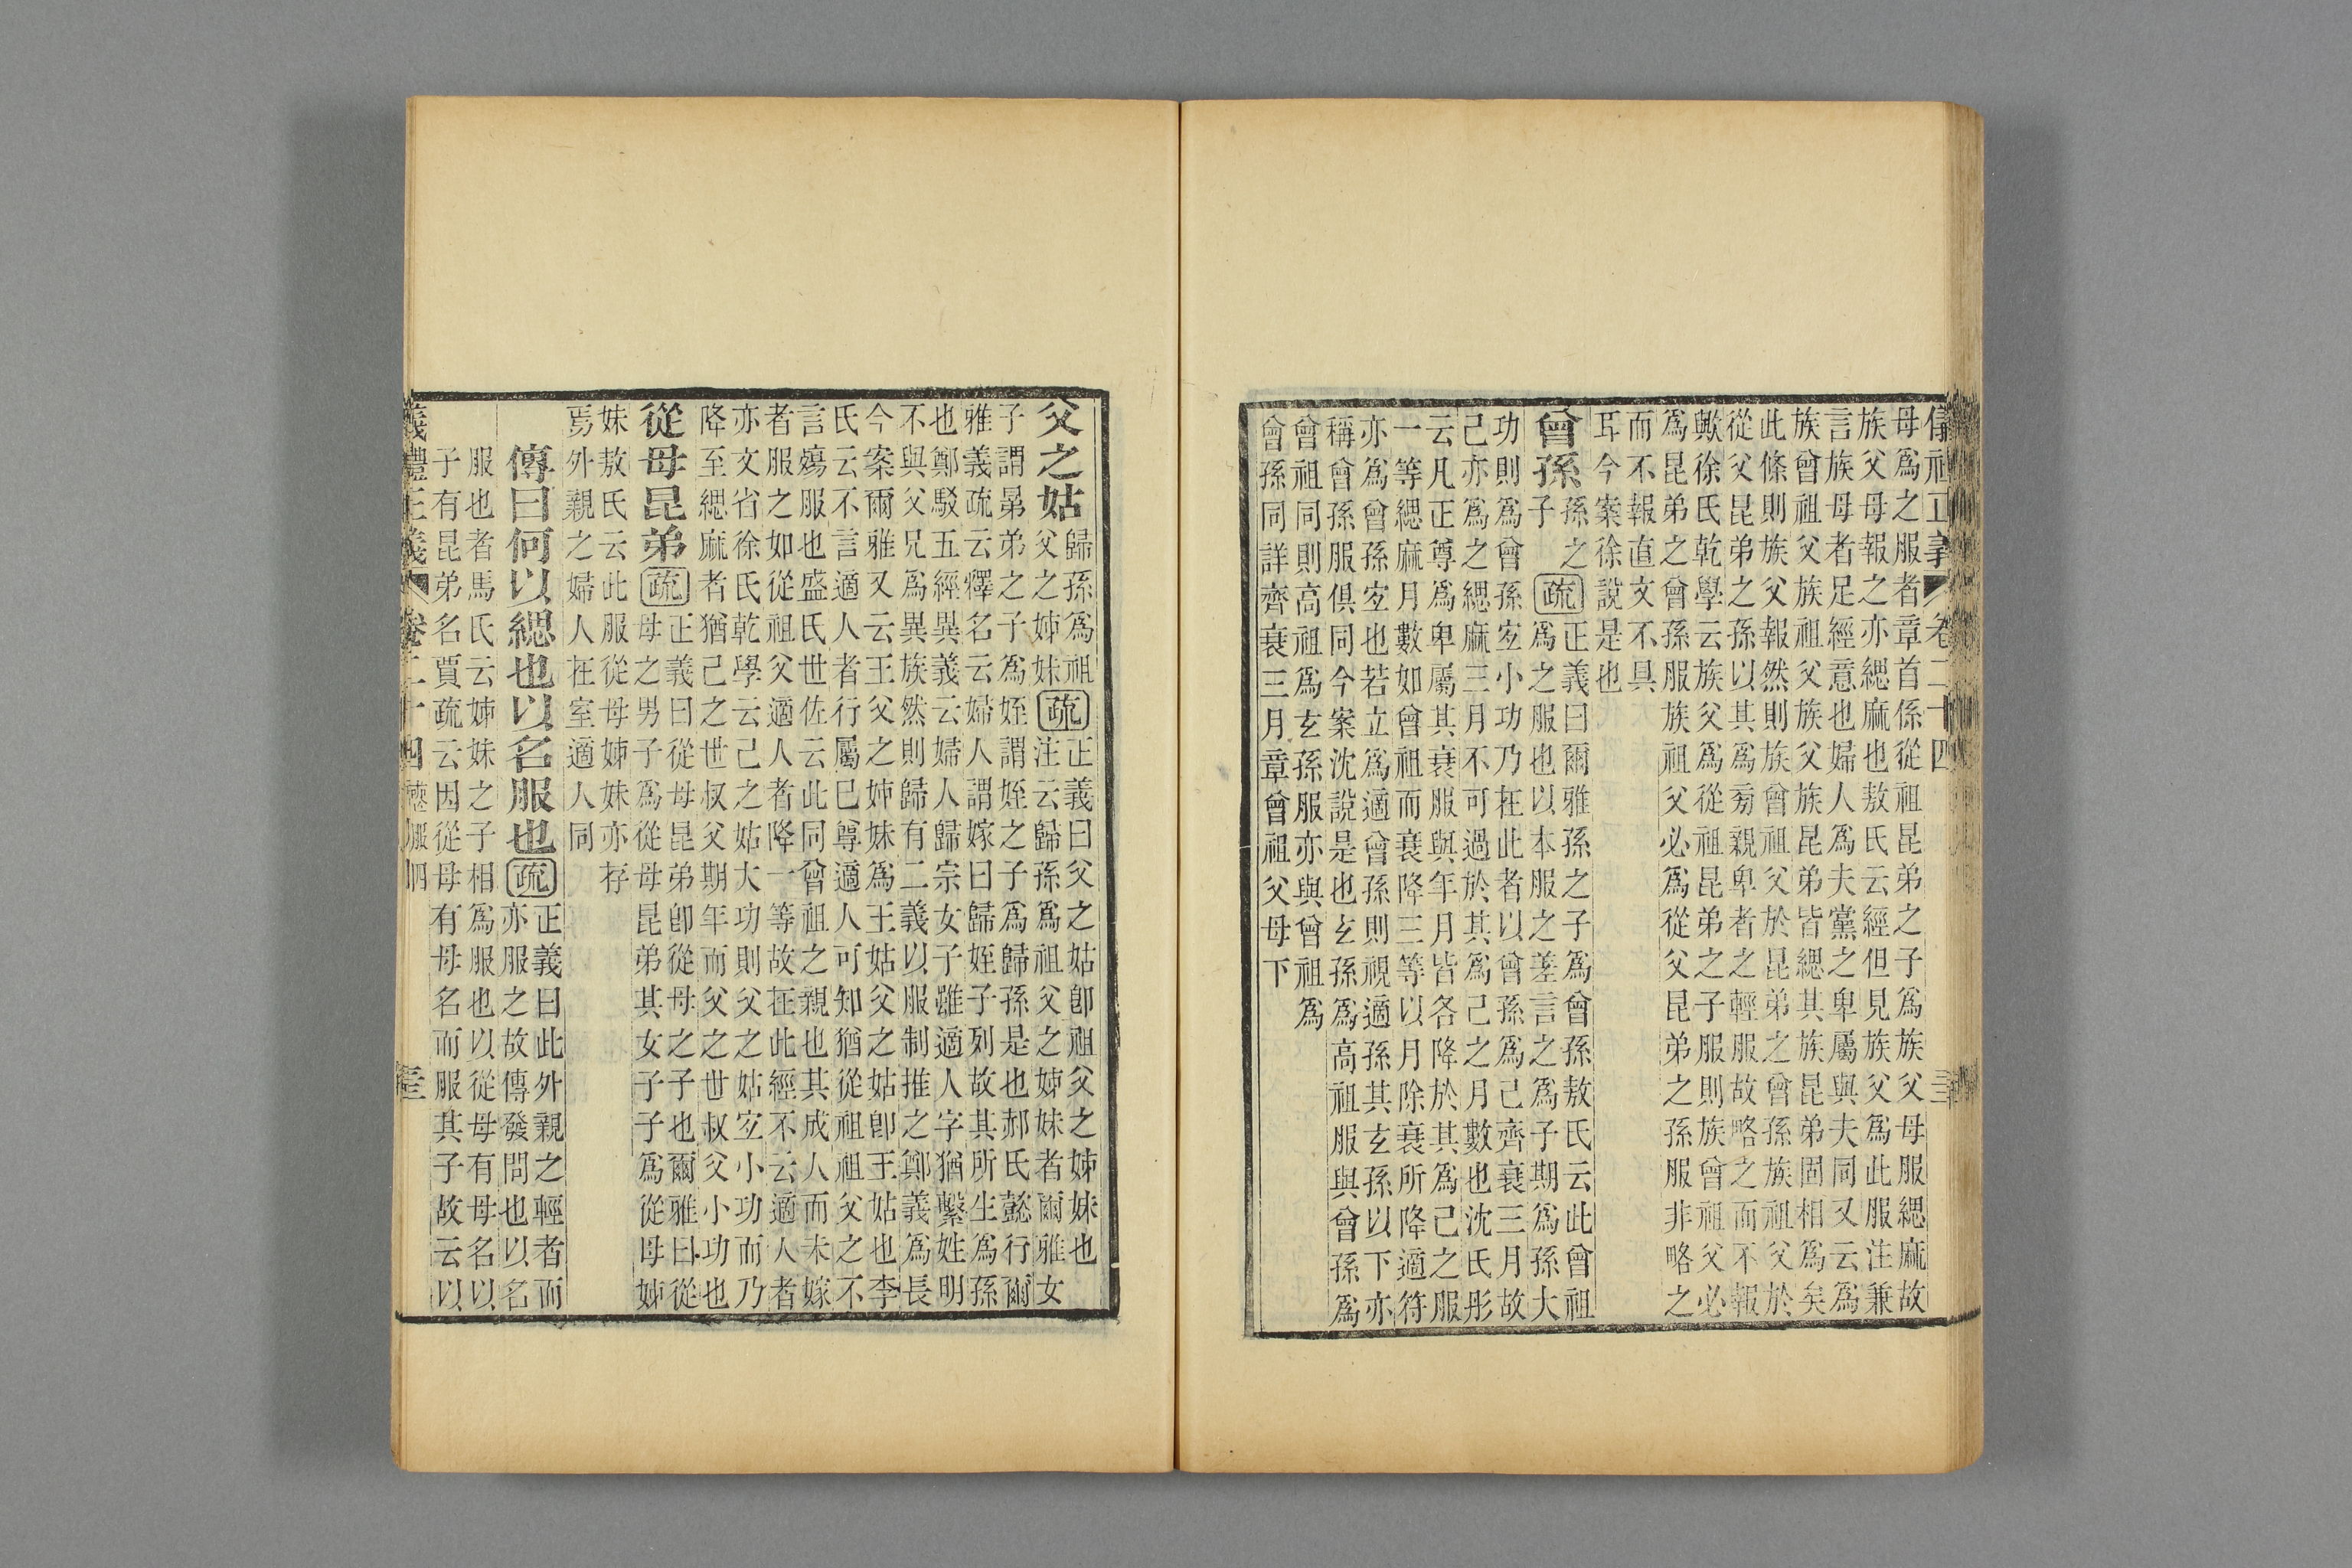 儀禮正義 卷二十四
母爲之服者章首係從祖昆弟之子爲族父母服緦麻故
族父母報之亦緦麻也敖氏云經但見族父爲此服注兼
言族母者足經意也婦人爲夫黨之卑屬與夫同又云爲
族曾祖父族祖父族父族昆弟皆緦其族昆弟固相爲矣
此條則族父報然則族曾祖父於昆弟之曾孫族祖父於
從父昆弟之孫以其爲旁親卑者之輕服故略之而不報
歟徐氏乾學云族父爲從祖昆弟之子服則族曾祖父必
爲昆弟之曾孫服族祖父必爲從父昆弟之孫服非略之
而不報直文不具
耳今案徐說是也
曾孫
孫之
子
疏
正義曰爾雅孫之子爲曾孫敖氏云此曾祖
爲之服也以本服之差言之爲子期爲孫大
功則爲曾孫宐小功乃在此者以曾孫爲己齊衰三月故
己亦爲之緦麻三月不可過於其爲己之月數也沈氏彤
云凡正尊爲卑屬其衰服與年月皆各降於其爲己之服
一等緦麻月數如曾祖而衰降三等以月除衰所降適符
亦爲曾孫宐也若立爲適曾孫則視適孫其玄孫以下亦
稱曾孫服俱同今案沈說是也玄孫爲高祖服與曾孫爲
曾祖同則高祖爲玄孫服亦與曾祖爲
曾孫同詳齊衰三月章曾祖父母下
父之姑
歸孫爲祖
父之姊妹
疏
正義曰父之姑卽祖父之姊妹也
注云歸孫爲祖父之姊妹者爾雅女
子謂晜弟之子爲姪謂姪之子爲歸孫是也郝氏懿行爾
雅義疏云釋名云婦人謂嫁曰歸姪子列故其所生爲孫
也鄭駁五經異義云婦人歸宗女子雖適人字猶繫姓明
不與父兄爲異族然則歸有二義以服制推之鄭義爲長
今案爾雅又云王父之姊妹爲王姑父之姑卽王姑也李
氏云不言適人者行屬已尊適人可知猶從祖祖父之不
言殤服也盛氏世佐云此同曾祖之親也其成人而未嫁
者服之如從祖父適人者降一等故在此經不云適人者
亦文省徐氏乾學云己之姑大功則父之姑宐小功而乃
降至緦麻者猶己之世叔父期年而父之世叔父小功也
從母昆弟
疏
正義曰從母昆弟卽從母之子也爾雅曰從
母之男子爲從母昆弟其女子子爲從母姊
妹敖氏云此服從母姊妹亦存
焉外親之婦人在室適人同
傳曰何以緦也以名服也
疏
正義曰此外親之輕者而
亦服之故傳發問也以名
服也者馬氏云姊妹之子相爲服也以從母有母名以
子有昆弟名賈疏云因從母有母名而服其子故云以
儀禮正義 卷二十四 喪服四